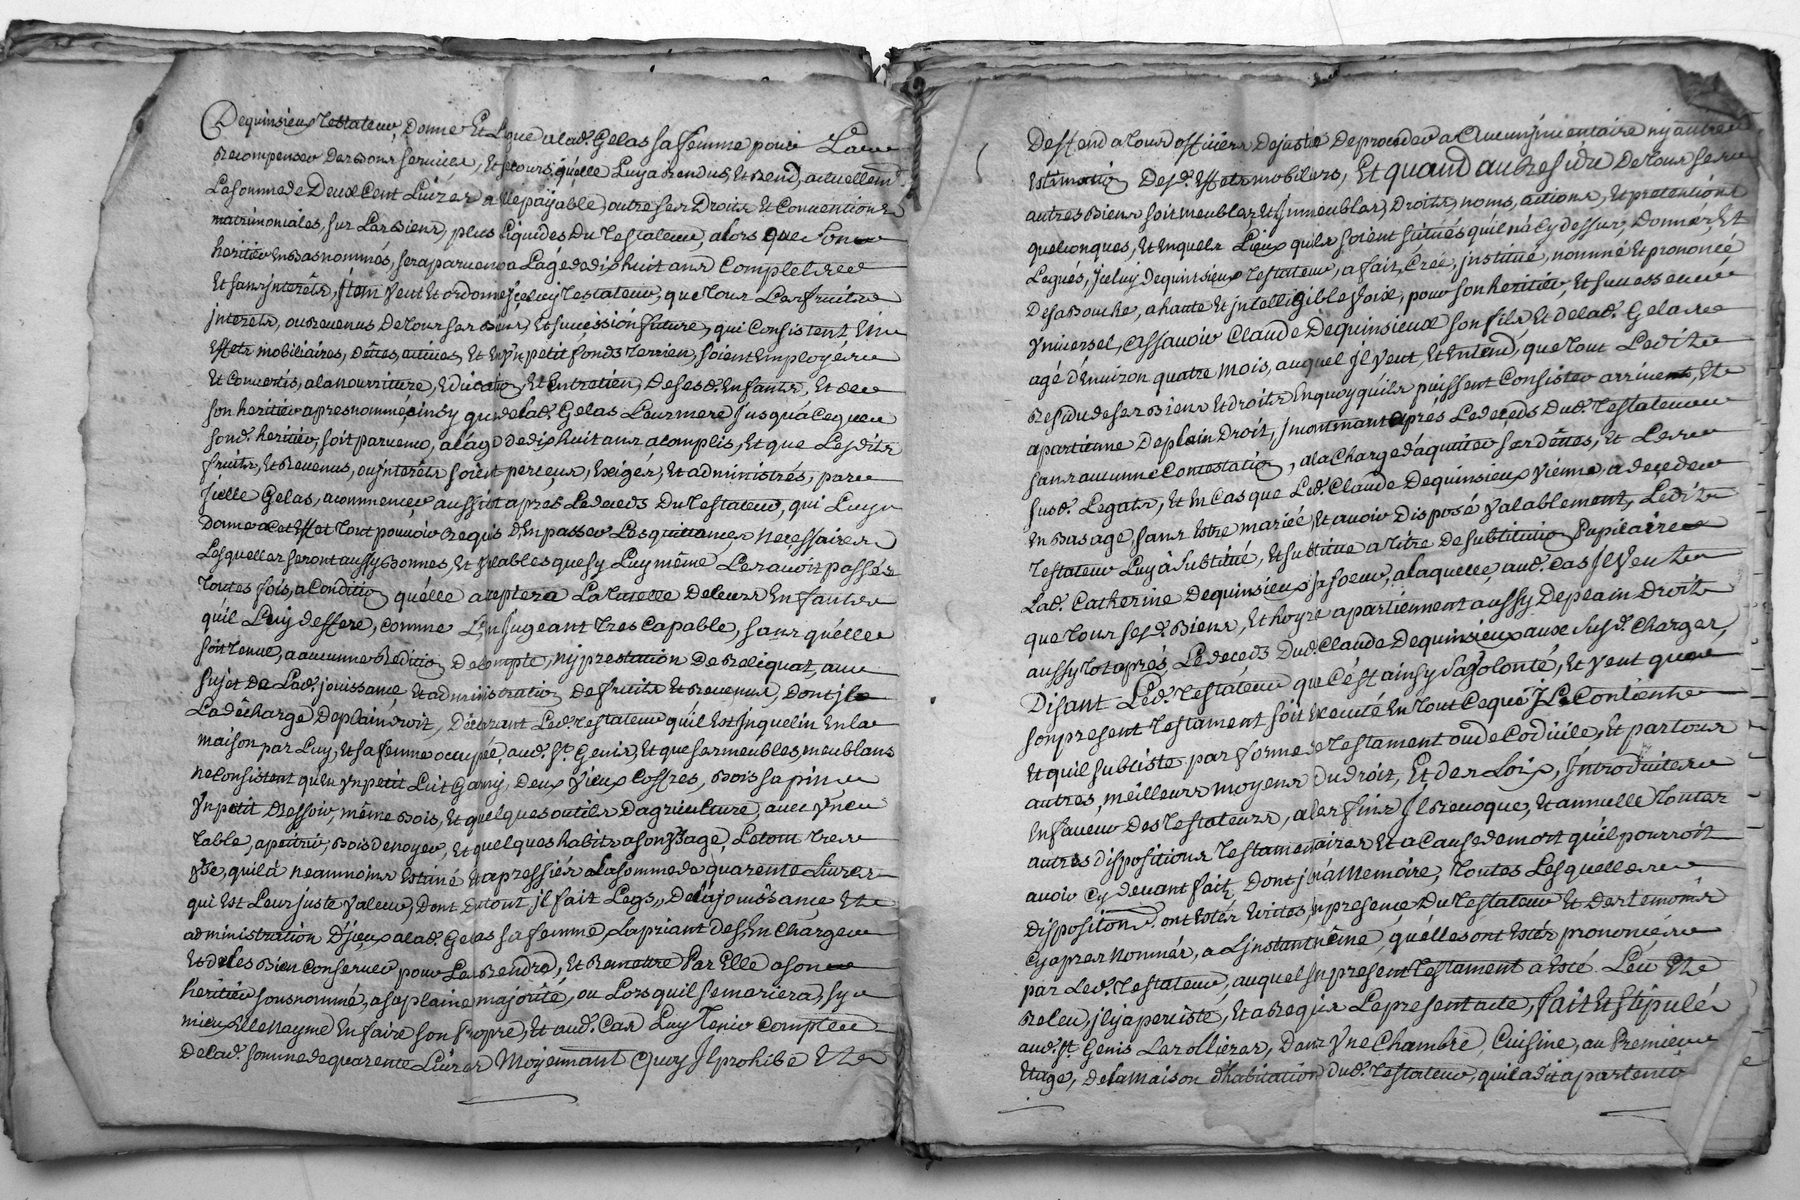 Dequinsieux Testateur, Donne Et Legue a lad. Gelas sa femme pour La
Recompenser des Bons services, Et secours, qu'elle Luy a Rendus, Et Rend, actuellemt.
La somme de Deux Cent Livres a Elle payable, outre ses Droits Et Conventions
matrimoniales, sur Les Biens, plus Liquides Du Testateur, alors que Son
heritier En Bas nommés, sera parvenu a L'age de dix huit ans Complets
Et sans jnterêts, jtem Veut Et ordonne jceluy Testateur, que Tous Les fruits
jnterets, ou Revenus De Tous ses Biens, Et succession future, qui Consistent En
Effets mobiliaires, dêttes, actives, Et En Vn petit fonds Terrien, soient Employés
Et Convertis, a la nourriture, Education, Et Entretien, De ses d. Enfants, Et de
son heritier apres nommé, ainsy que de lad. Gelas Leur mere jusqu'a ce que
sond. heritier, soit parvenu, a l'âge De dix huit ans acomplis, Et que Lesdits
fruits, Et Revenus, ou jnterêts soient perceus, Exigés, Et administrés, par
jcelle Gelas, a commencer aussitot aprés Le deceds Du Testateur, qui Luy
donne a cet Effet Tout pouvoir Requis D'En passer Les quittances Necessaires
Lesquelles seront aussy Bonnes, Et Valables que sy Luy même Les avoit passés
Toutes fois, a Condition qu'elle aceptera La Tutelle de leurs Enfants
qu'il Luy deffere, comme L'En jugeant Tres Capable, sans qu'elle
soit Tenue, a aucunne Reditio De Compte, Ny prestation De Reliquat, au
sujet de Lad. jouissance, Et administration De fruits Et Revenus, dont jl
La décharge De plain droit, Déclarant Led. Testateur qu'il Est Jnquelin En la
maison par Luy, Et sa femme occupée, aud. St. Genis, Et que ses meubles, meublans
ne Consistent qu'En Vn petit Lit Garny, Deux Vieux Coffres, Bois sapin
Vn petit Dressoir, même Bois, Et quelques outils D'agriculture, avec Vne
Table, a petrir, Bois de noyer, Et quelques habits a son Vsage, Le tout Tres
Vsé, qu'il a neanmoins Estimé Et apressiés a La somme de quarente Livres
qui Est Leur juste Valeur, Dont Du tout jl fait Legs, De la jouissance Et
administration D'jceux a lad. Gelas sa femme, La priant de s'En Charger
Et de les Bien Conserver pour Les Rendre, Et Remettre Par Elle a son
heritier sousnommé, a sa plaine majorité, ou Lors qu'il se mariera, sy
mieux Elle N'ayme En faire son Propre, Et aud. Cas Luy Tenir Compte
De lad. somme de quarente Livres Moyennant Quoy Jl prohibe Et
Deffend a Tous officiers De justice De proceder a Aucun jnventaire ny autre
Estimation Des d. Effets mobiliers, Et quand au Residu De Tous ses
autres Biens soit meubles Et Jmmeubles, Droits, noms, actions, Et pretentions
quelconques, Et En quels Lieux qu'ils soient situés qu'il n'a Cy dessus, Donnés, Et
Legués, jceluy Dequinsieux Testateur, a fait, Créé, jnstitué, nommé Et prononcé
De sa Bouche, a haute Et jntelligible Voix, pour son heritier, Et successeur
Vniversel, Assavoir Claude Dequinsieux son fils Et de lad. Gelas
agé d'Environ quatre Mois, auquel jl Veut, Et Entend, que Tout Ledit
Residu de ses Biens Et droits En quoy qu'ils puissent Consister arrivent, Et
apartienne De plain Droit, jncontinant aprés Le deceds Dud. Testateur
sans aucunne Contestation, a la Charge d'aquitter ses dêttes, Et Les
susd. Legats, Et En Cas que Led. Claude Dequinsieux Vienne a deceder
En Bas age, sans Estre mariée, Et avoir Disposé Valablement, Ledit
Testateur Luy à substitué, Et substitue a Titre De substitution Pupilaire
Lad. Catherine Dequinsieux sa soeur, a laquelle, aud. Cas Jl Veut
que Tous ses d. Biens, Et hoyrs apartiennent aussy De plain Droit
aussy Tot aprés Le deceds Dud. Claude Dequinsieux aux susd. Charges,
Disant Led. Testateur que C'est ainsy Sa Volonté, Et Veut que
son present Testament soit Executé En Tout Ce que JL Contient
Et qu'il subsiste par forme de Testament ou de Codicile, Et par tous
autres, meilleurs moyens du droit, Et des Loix, jntroduites
En faveur Des Testateurs, a les fins Jl Revoque, Et annulle Toutes
autres dispositions Testamentaires Et a Cause de mort qu'il pourroit
avoir Cy devant fait, Dont jl n'a Memoire, Toutes Lesquelles
Disposition. ont Estés Ecrites, En presence Du Testateur Et des Temoins
Cy apres Nommés, a L'jnstant même, qu'elles ont Estés prononcées
par Led. Testateur, auquel sn present Testament a Esté Leu Et
Releu, jl y a percisté, Et a Requis Le present acte, fait Et stipulé
aud. St. Genis Les ollieres, Dans Vne Chambre, Cuisine, au Premier
Etage, De la Maison d'habitation dud. Testateur, qu'il a dit apartenir